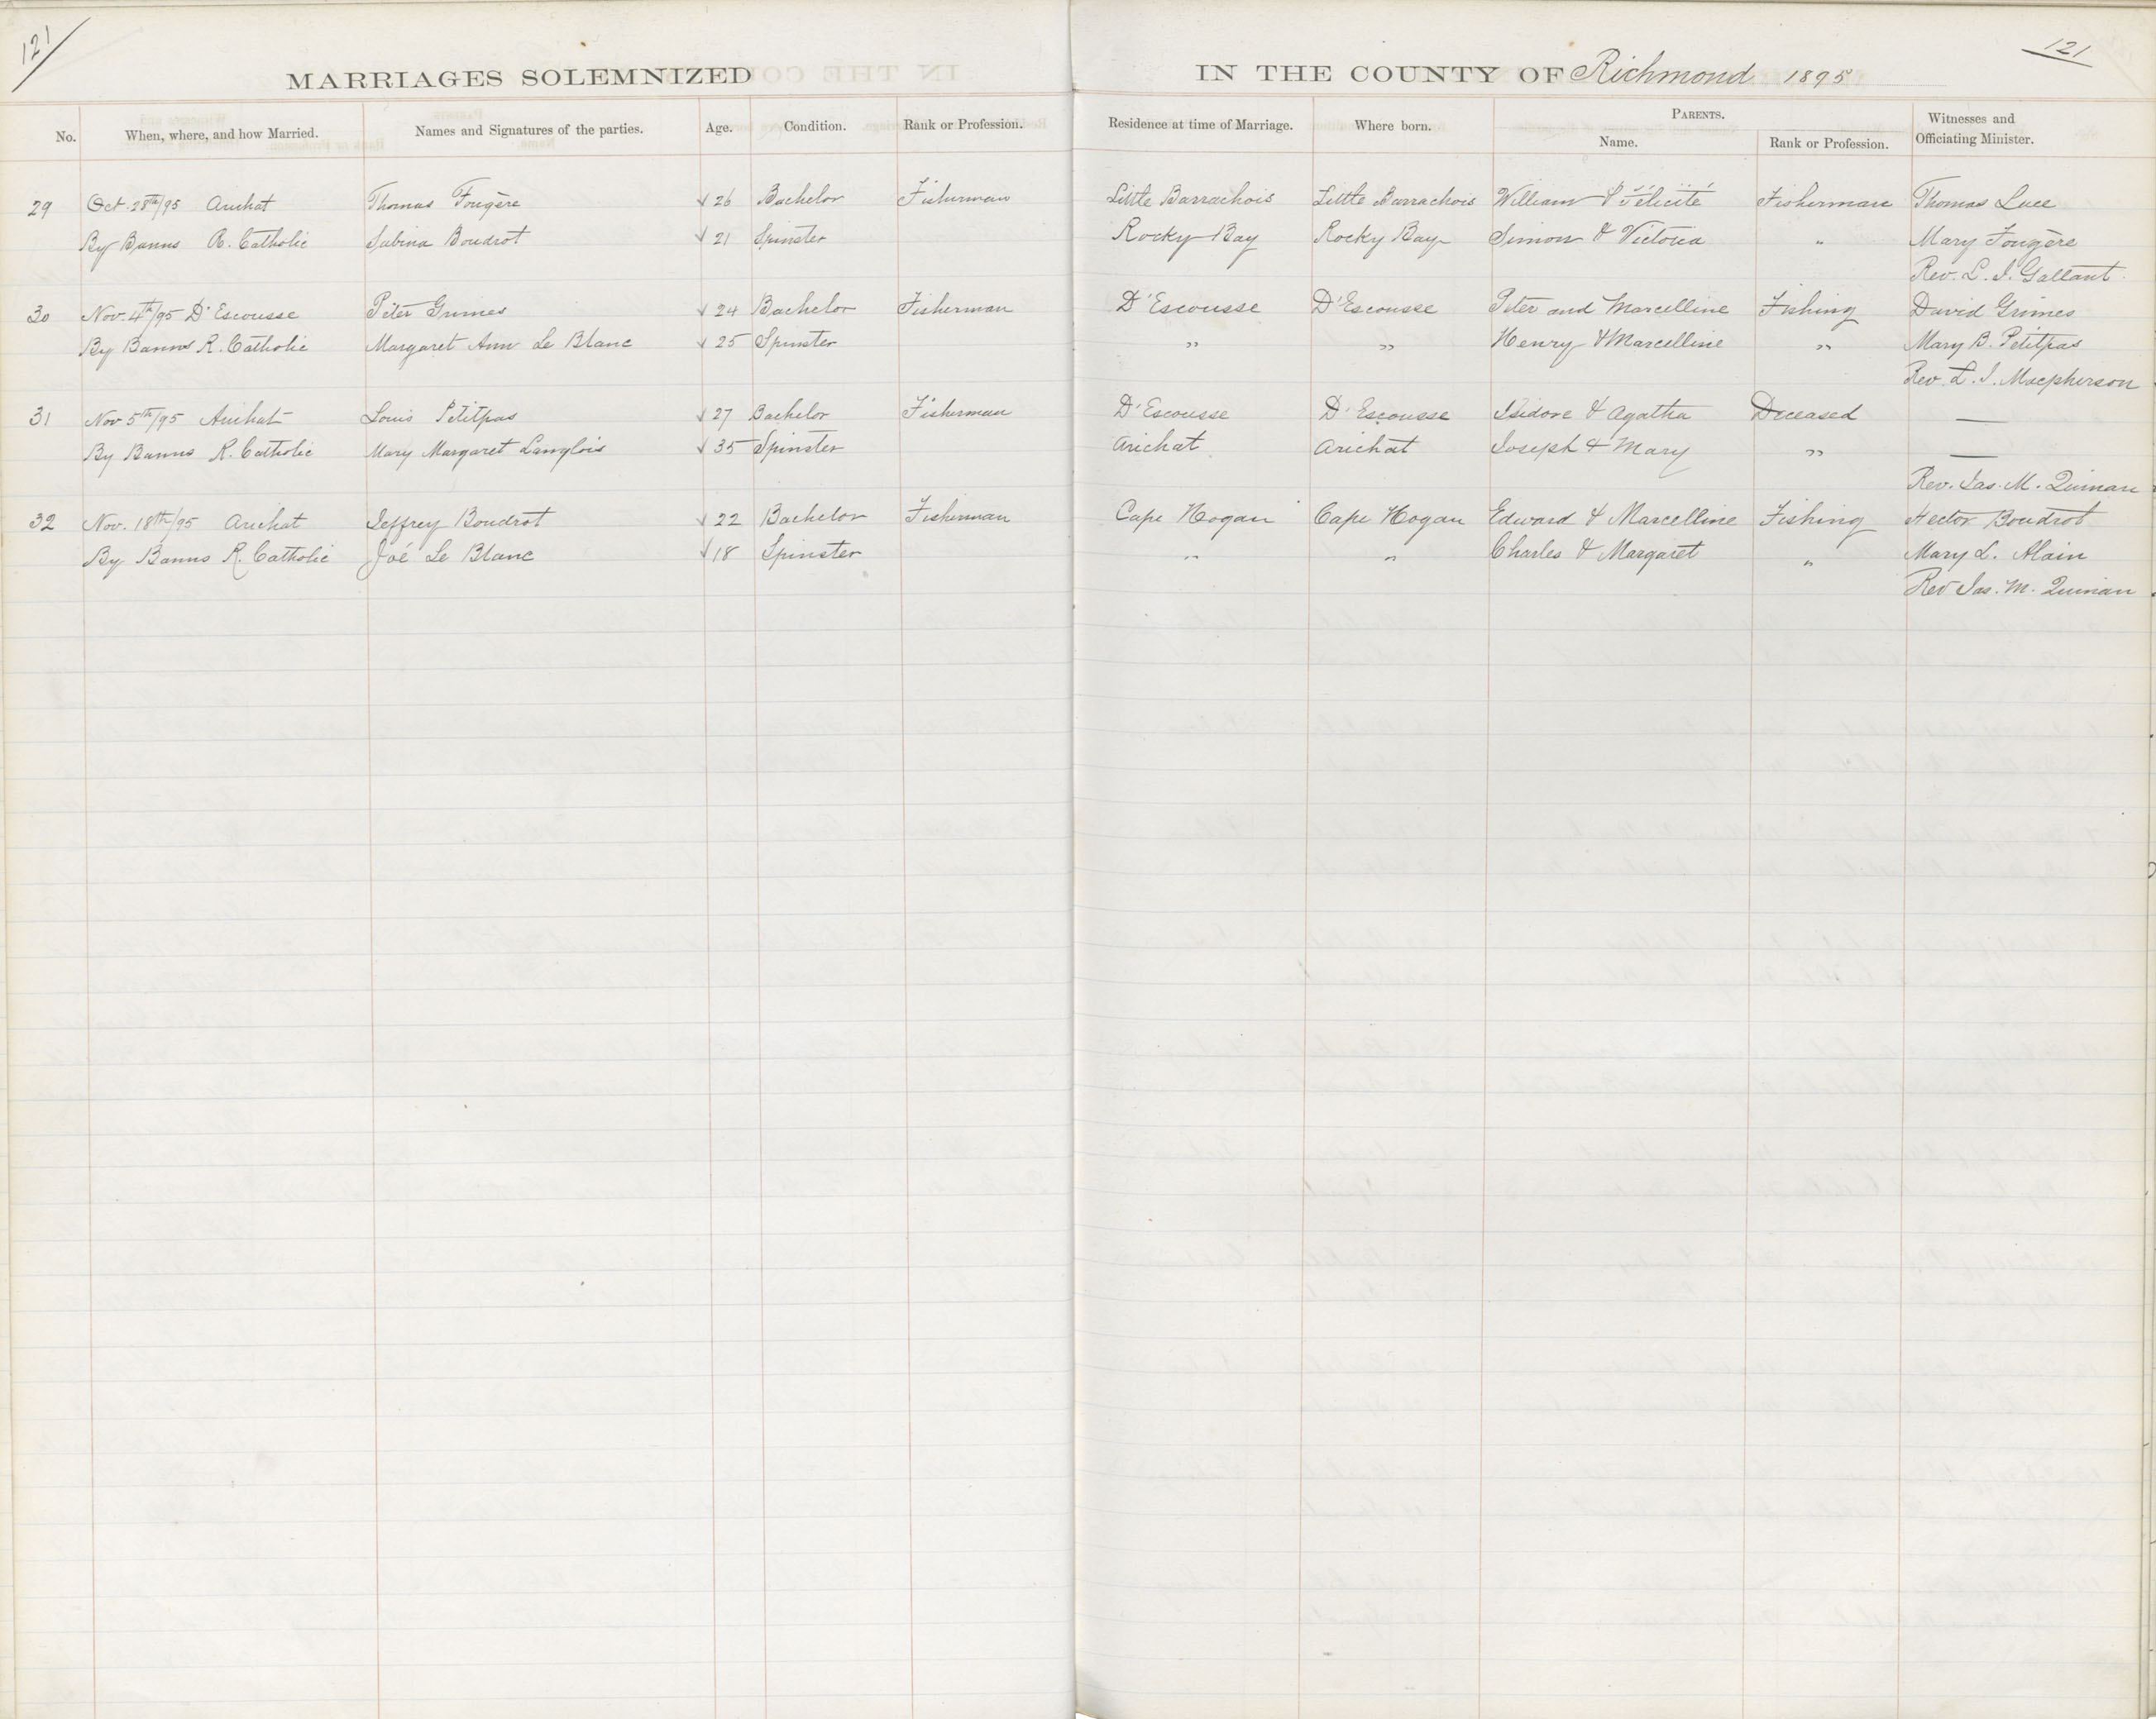 121
121
MARRIAGES SOLEMNIZED IN THE COUNTY OF Richmond 1895
No. When, where, and how Married. Names and Signatures of the parties. Age. Condition. Rank or Profession. Residence at time of Marriage. Where born. PARENTS. Name. Rank or Profession. Witnesses and Officiating Minister.
29 Oct. 28th/95 Arichat Thomas Fougère √ 26 Bachelor Fisherman Little Barrachois Little Barrachois William & Félicité Fisherman Thomas Luce
By Banns R. Catholic Sabina Boudrot √ 21 Spinster Rocky Bay Rocky Bay Simon & Victoria " Mary Fougère
Rev. L. J. Gallant.
30 Nov. 4th/95 D'Escousse Peter Grimes √ 24 Bachelor Fisherman D'Escousse D'Escousse Peter and Marcelline Fishing David Grimes
By Banns R. Catholic Margaret Ann Le Blanc √ 25 Spinster " " Henry & Marcelline " Mary B. Petitpas
Rev. L. J. Macpherson
31 Nov 5th/95 Arichat Louis Petitpas √ 27 Bachelor Fisherman D'Escousse D'Escousse Isidore & Agatha Deceased —
By Banns R. Catholic Mary Margaret Langlois √ 35 Spinster Arichat Arichat Joseph & Mary " —
Rev. Jas. M. Quinan
32 Nov. 18th/95 Arichat Jeffrey Boudrot √ 22 Bachelor Fisherman Cape Hogan Cape Hogan Edward & Marcelline Fishing Hector Boudrot
By Banns R. Catholic Joé Le Blanc √ 18 Spinster " " Charles & Margaret " Mary L. Alain
Rev Jas. M. Quinan